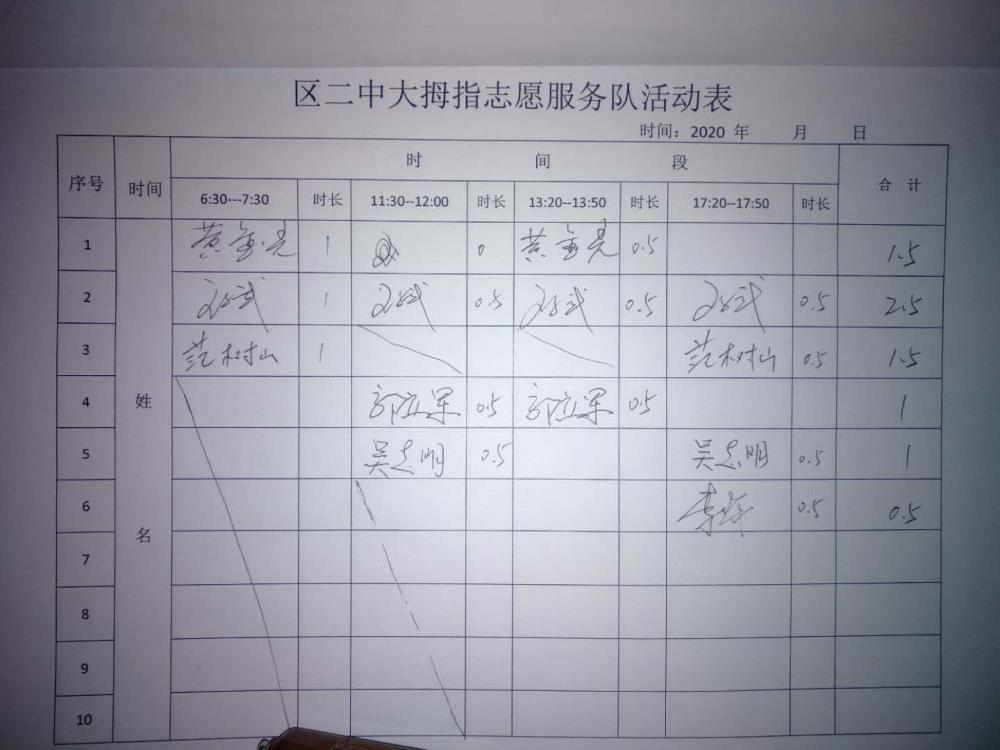 区二中大拇指志愿服务队活动表
时间：2020 年 月 日
序号 时间 时 间 段 合 计
6:30---7:30 时长 11:30--12:00 时长 13:20--13:50 时长 17:20--17:50 时长
1 黄 1 0 黄 0.5 1.5
2 1 0.5 0.5 0.5 2.5
3 范树山 1 范树山 0.5 1.5
4 姓 郭立军 0.5 郭立军 0.5 1
5 吴志明 0.5 吴志明 0.5 1
6 名 李 0.5 0.5
7
8
9
10